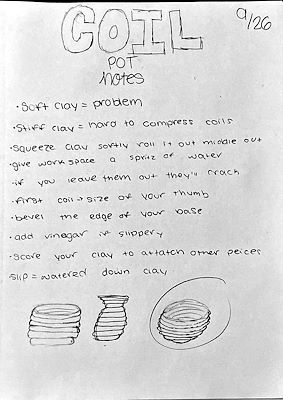 COIL
9/26
POT
notes
·Soft clay = problem
·Stiff clay = hard to compress coils
·Squeeze clay softly roll it out middle out
·give workspace a spritz of water
·if you leave them out they'll crack
·first coil → size of your thumb
·bevel the edge of your base
·add vinegar if slippery
·Score your clay to attatch other peices
Slip = watered down clay